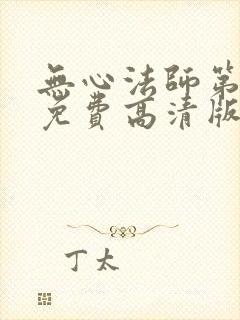 無心法師第
免費高清版
丁太